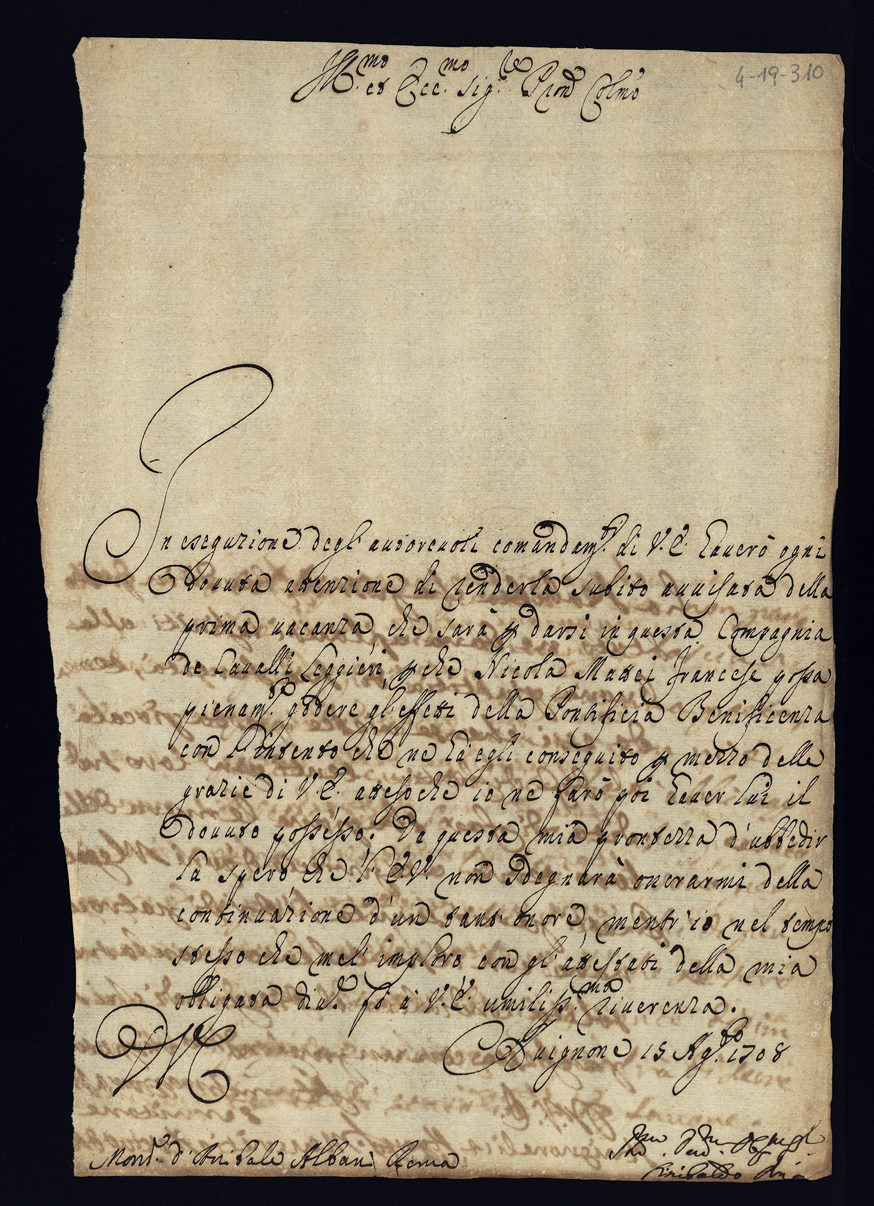 Ill.mo et Ecc.mo Sig.re P.ron Colmo
4-19-310
In esequzione degl'autorevoli comandam.ti di V.E. haverò ogni
dovuta attenzione di renderla subito avvisata della
prima vacanza che sarà p darsi in questa Compagnia
de Cavalli Leggieri, p che Nicola Mattei francese possa
pienam.te godere gl'effetti della Pontificia Benificenza
con l'intento che ne hà egli conseguito p mezzo delle
grazie di V.E. atteso che io ne farò poi haver lui il
dovuto possesso. Da questa mia prontezza d'ubbidir
la spero che l'E.V. non sdegnarà onorarmi della
continuazione d'un tant'onore, mentr'io nel tempo
stesso che mel'imploro con gl'attestati della mia
obligata div.ne fò à V.E. umiliss.ma riverenza.
Avignone 15 Ag.sto 1708
Mons.r d'Anibale Albani Roma